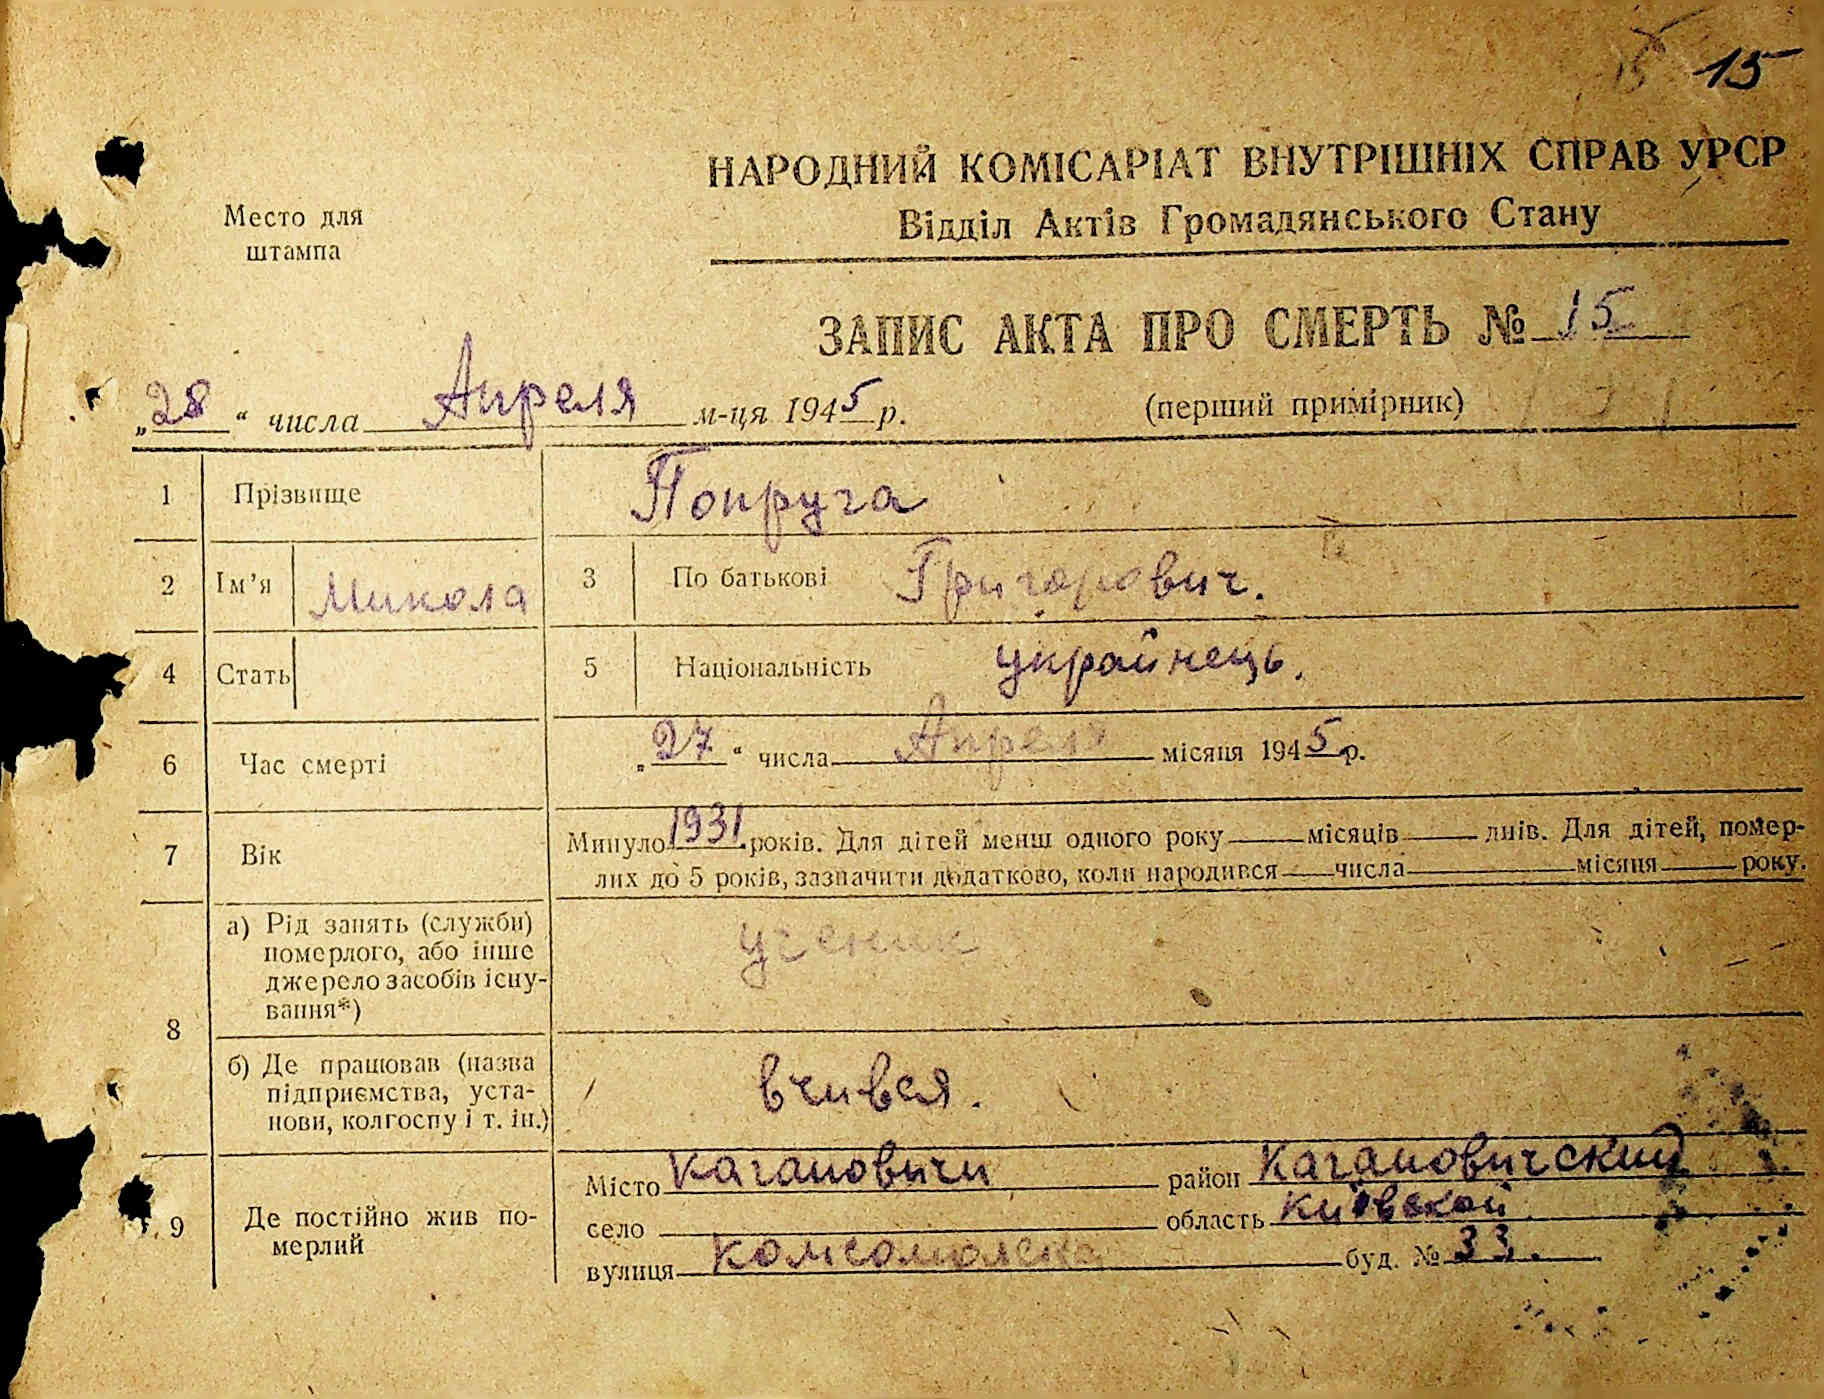 15 15
НАРОДНИЙ КОМІСАРІАТ ВНУТРІШНІХ СПРАВ УРСР
Відділ Актів Громадянського Стану
Место для
штампа
ЗАПИС АКТА ПРО СМЕРТЬ № 15
„28“ числа Апреля м-ця 1945 р.
(перший примірник)
1 Прізвище Попруга
2 Ім’я Микола 3 По батькові Григорович.
4 Стать 5 Національність українець.
6 Час смерті „27“ числа Апреля місяця 1945 р.
7 Вік Минуло 1931 років. Для дітей менш одного року місяців днів. Для дітей, помер-
лих до 5 років, зазначити додатково, коли народився числа місяця року.
8 а) Рід занять (служби)
померлого, або інше
джерело засобів існу-
вання*)
ученик
б) Де працював (назва
підприємства, уста-
нови, колгоспу і т. ін.)
вчився.
9 Де постійно жив по-
мерлий
Місто Кагановичи район Кагановичский
село область Київской
вулиця Комсомолска буд. № 33.